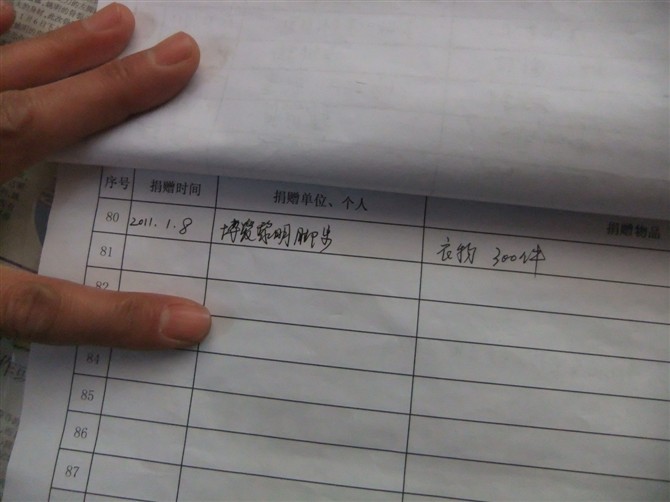 序号 捐赠时间 捐赠单位、个人 捐赠物品
80 2011.1.8 博爱黎明脚步 衣物 300件
81
82
84
85
86
87